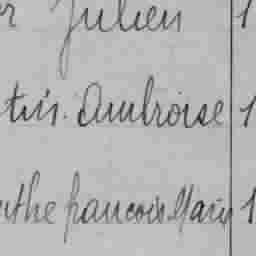 r Julien 1
tin. Ambroise 1
the francois Marie 1